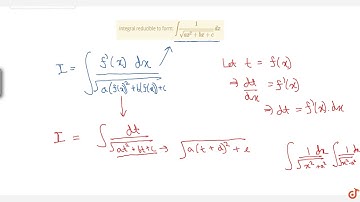 integral reducible to form ∫ 1/√(ax² + bx + c) dx
I = ∫ f'(x) dx / √(a(f(x))² + b(f(x)) + c
Let t = f(x)
⇒ dt/dx = f'(x)
⇒ dt = f'(x) . dx
I = ∫ dt / √(at² + bt + c) → √(a(t + d)² + e
∫ 1 dx / √(x² + a²) ∫ 1 dx